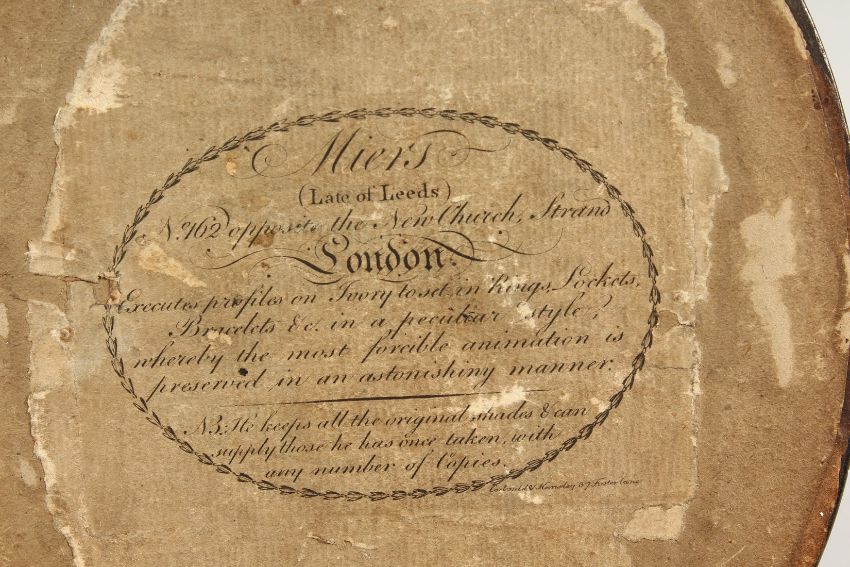 Miers
(Late of Leeds)
No. 162 opposite the New Church, Strand
London.
Executes profiles on Ivory to set in Rings, Lockets,
Bracelets &c. in a peculiar style,
whereby the most forcible animation is
preserved in an astonishing manner.
NB. He keeps all the original shades & can
supply those he has once taken, with
any number of Copies.